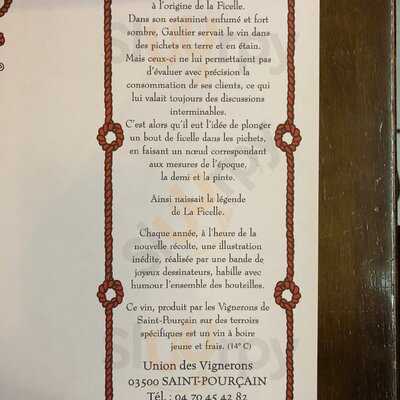 à l'origine de la Ficelle.
Dans son estaminet enfumé et fort
sombre, Gaultier servait le vin dans
des pichets en terre et en étain.
Mais ceux-ci ne lui permettaient pas
d'évaluer avec précision la
consommation de ses clients, ce qui
lui valait toujours des discussions
interminables.
C'est alors qu'il eut l'idée de plonger
un bout de ficelle dans les pichets,
en faisant un nœud correspondant
aux mesures de l'époque,
la demi et la pinte.
Ainsi naissait la légende
de La Ficelle.
Chaque année, à l'heure de la
nouvelle récolte, une illustration
inédite, réalisée par une bande de
joyeux dessinateurs, habille avec
humour l'ensemble des bouteilles.
Ce vin, produit par les Vignerons de
Saint-Pourçain sur des terroirs
spécifiques est un vin à boire
jeune et frais. (14° C)
Union des Vignerons
03500 SAINT-POURÇAIN
Tél. : 04 70 45 42 82